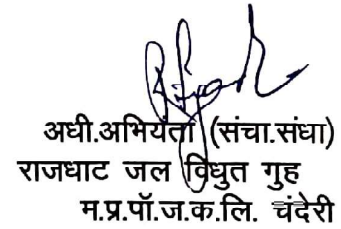 अधी.अभियंता (संचा.संधा)
राजधाट जल विधुत गुह
म.प्र.पॉ.ज.क.लि. चंदेरी